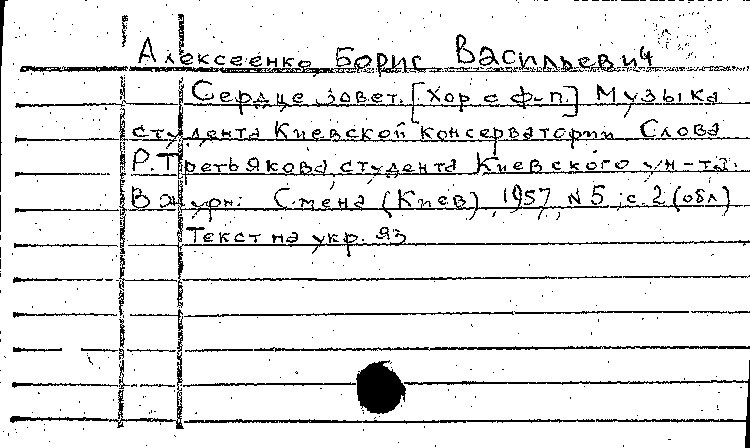 Алексеенко, Борис Васильевич
Сердце зовет. [Хор с ф-п.] Музыка
студента Киевской консерватории Слова
Р. Третьякова, студента Киевского ун-та.
В журн: Смена (Киев), 1957, N 5, с 2 (обл)
Текст на укр. яз